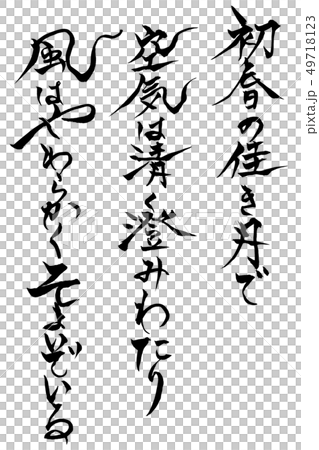 初春の佳き月で
空気は清く澄みわたり
風はやわらかくそよいでいる
49718123